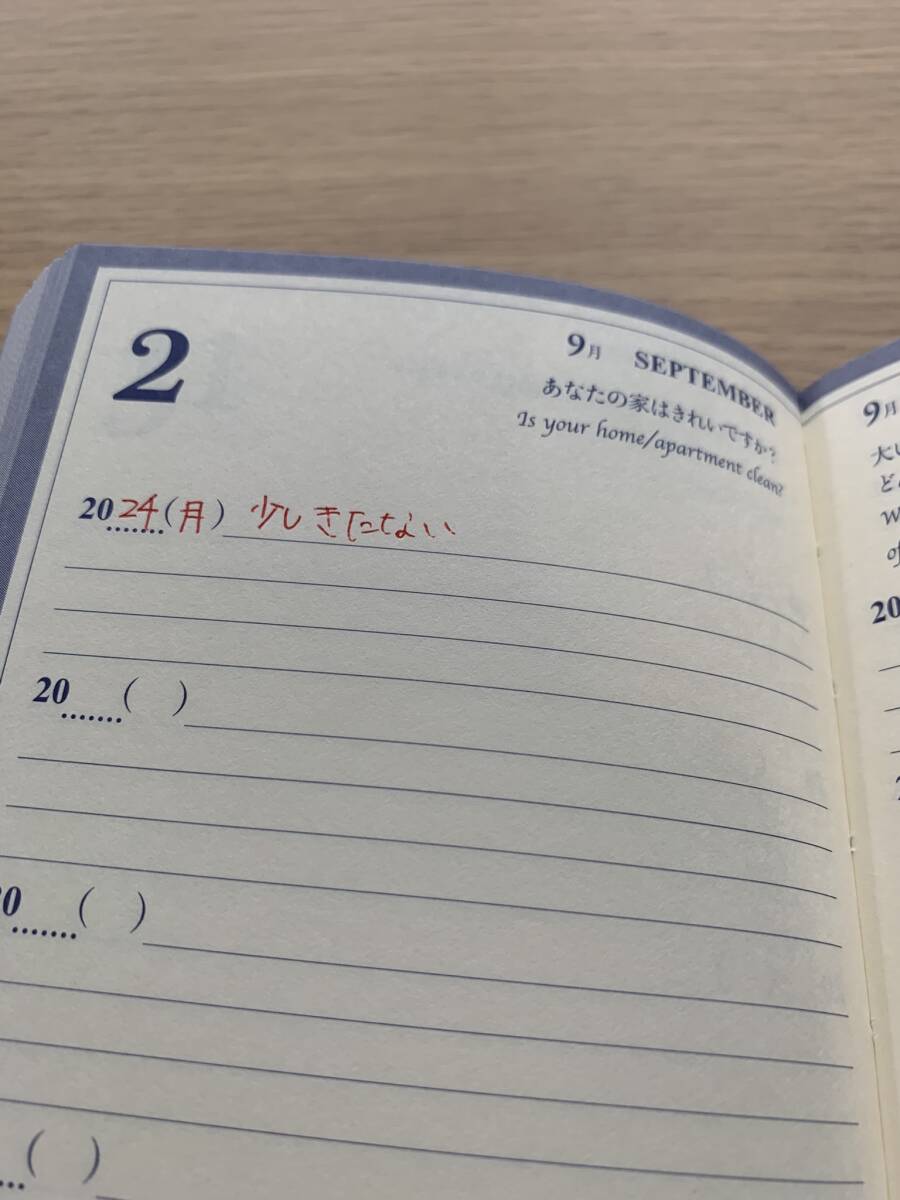 2
9月 SEPTEMBER
あなたの家はきれいですか?
Is your home/apartment clean?
2024(月) 少しきたない
20 ( )
20 ( )
( )
9月
大
ど
W
of
20